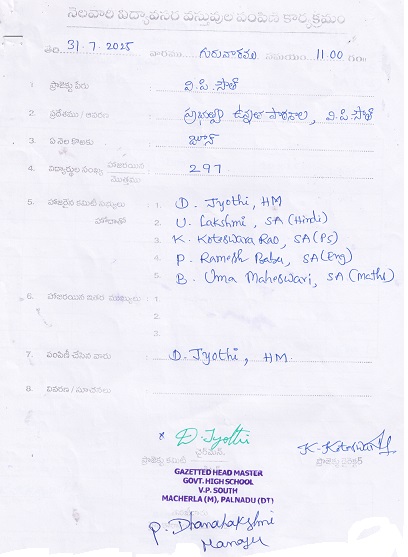 నెలవారి విద్యావసర వస్తువుల పంపిణి కార్యక్రమం
తేది 31.7.2025 వారము గురువారము సమయం 11.00 గం
1. ప్రాజెక్టు పేరు వి.పి.సౌత్
2. ప్రదేశము / ఆవరణ ప్రభుత్వ ఉన్నత పాఠశాల, వి.పి.సౌత్
3. ఏ నెల కొరకు జూన్
4. విద్యార్థుల సంఖ్య హాజరయిన
మొత్తము 297
5. హాజరైన కమిటీ సభ్యులు 1. D. Jyothi, HM
హోదాతో 2. U. Lakshmi, SA (Hindi)
3. K. Koteswara Rao, SA (PS)
4. P. Ramesh Babu, SA (Eng)
5. B. Uma Maheswari, SA (maths)
6. హాజరయిన ఇతర 1.
2.
3.
7. పంపిణీ చేసిన వారు D. Jyothi, HM.
8. వివరణ / సూచనలు
x D. Jyothi K. Koteswar
ప్రాజెక్టు కమిటీ చైర్మన్ ప్రాజెక్టు డైరెక్టర్
GAZETTED HEAD MASTER
GOVT. HIGH SCHOOL
V.P. SOUTH
MACHERLA (M), PALNADU (DT)
P. Dhanalakshmi
Manager